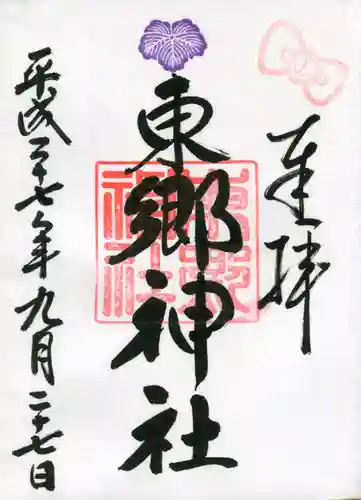 奉拝
東郷神社
東郷神社
平成二十七年九月二十七日